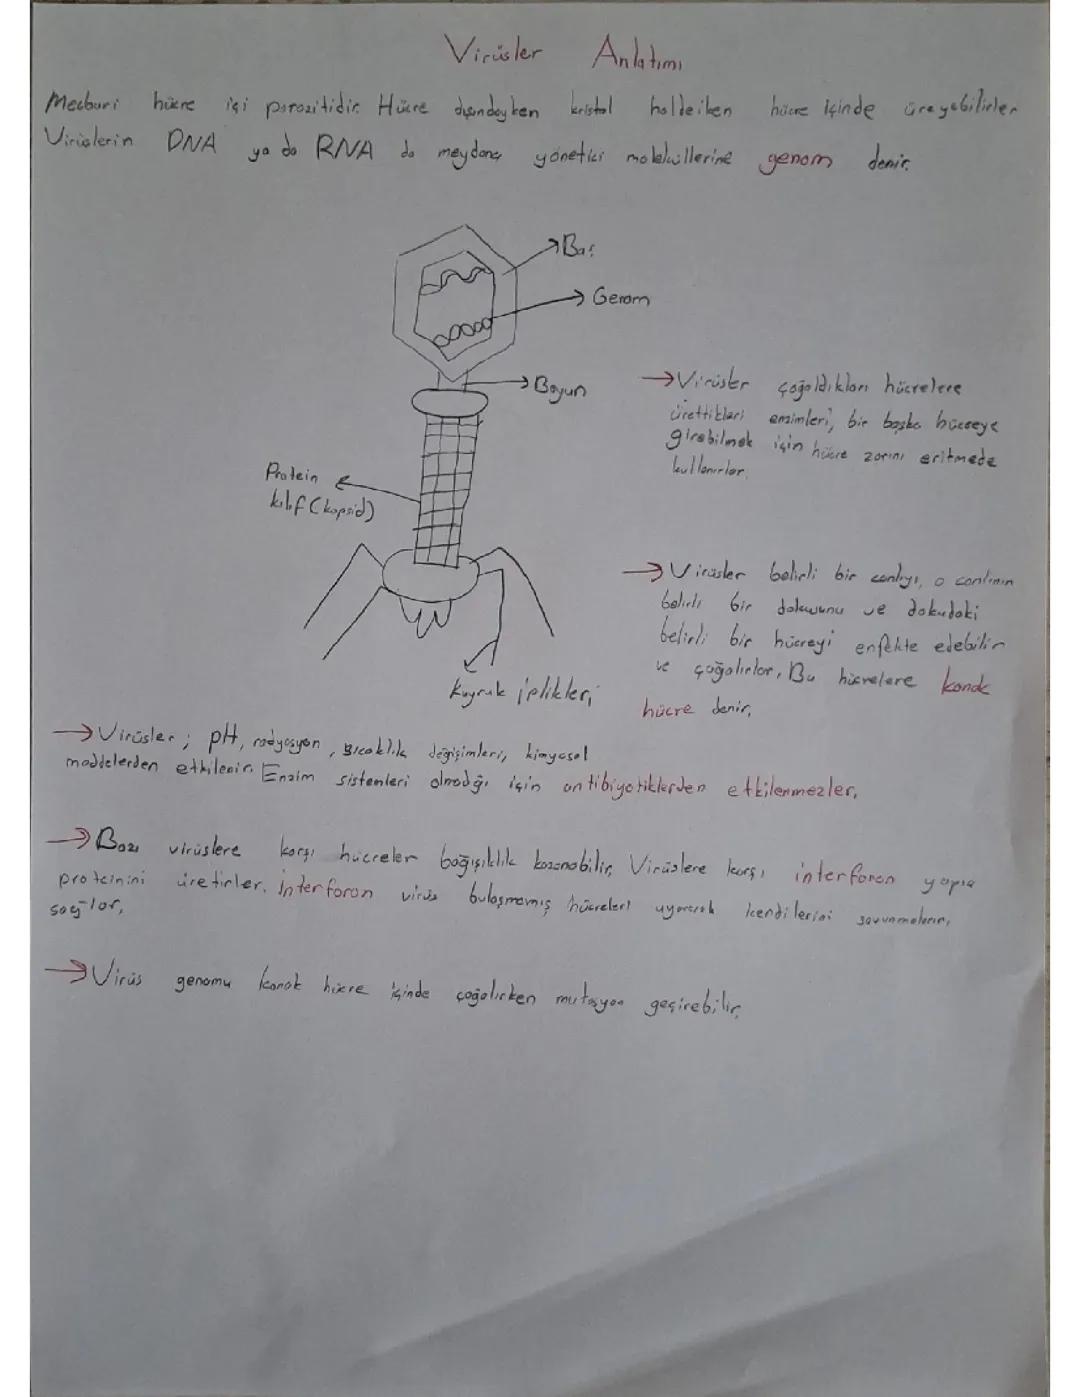 Virüsler Anlatımı
Mecburi hücre içi parazitidir. Hücre dışındayken kristal haldeiken hücre içinde üreyebilirler
Virüslerin DNA ya da RNA da meydana yönetici moleküllerine genom denir.
Baş
Genom
Boyun
Protein
kılıf (kapsid)
Kuyruk iplikleri
→ Virüsler çoğaldıkları hücrelere
ürettikleri enzimleri, bir başka hücreye
girebilmek için hücre zarını eritmede
kullanırlar.
→ Virüsler belirli bir canlıyı, o canlının
belirli bir dokusunu ve dokudaki
belirli bir hücreyi enfekte edebilir
ve çoğalırlar. Bu hücrelere konak
hücre denir.
→ Virüsler; pH, radyasyon, sıcaklık değişimleri, kimyasal
maddelerden etkilenir. Enzim sistemleri olmadığı için antibiyotiklerden etkilenmezler.
→ Bazı virüslere karşı hücreler bağışıklık kazanabilir. Virüslere karşı interforon yapıa
proteinini üretirler. İnterforon virüs bulaşmamış hücreleri uyararak kendilerini savunmalarını
sağlar.
→ Virüs genomu konak hücre içinde çoğalırken mutasyon geçirebilir.